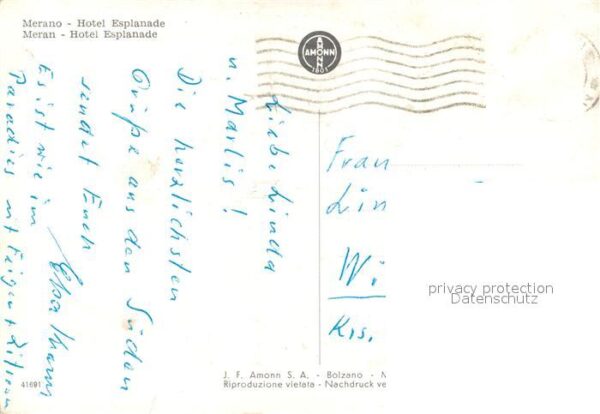 Merano - Hotel Esplanade
Meran - Hotel Esplanade
AMONN
AMONN
1801
Liebe Linda
u. Marlis!
Die herzlichsten
Grüße aus dem Süden
sendet Euch
Es ist wie im
Paradies mit Feigen +
Frau
Lin
Wi
Krs.
privacy protection
Datenschutz
J. F. Amonn S. A. - Bolzano -
Riproduzione vietata - Nachdruck ve
41691